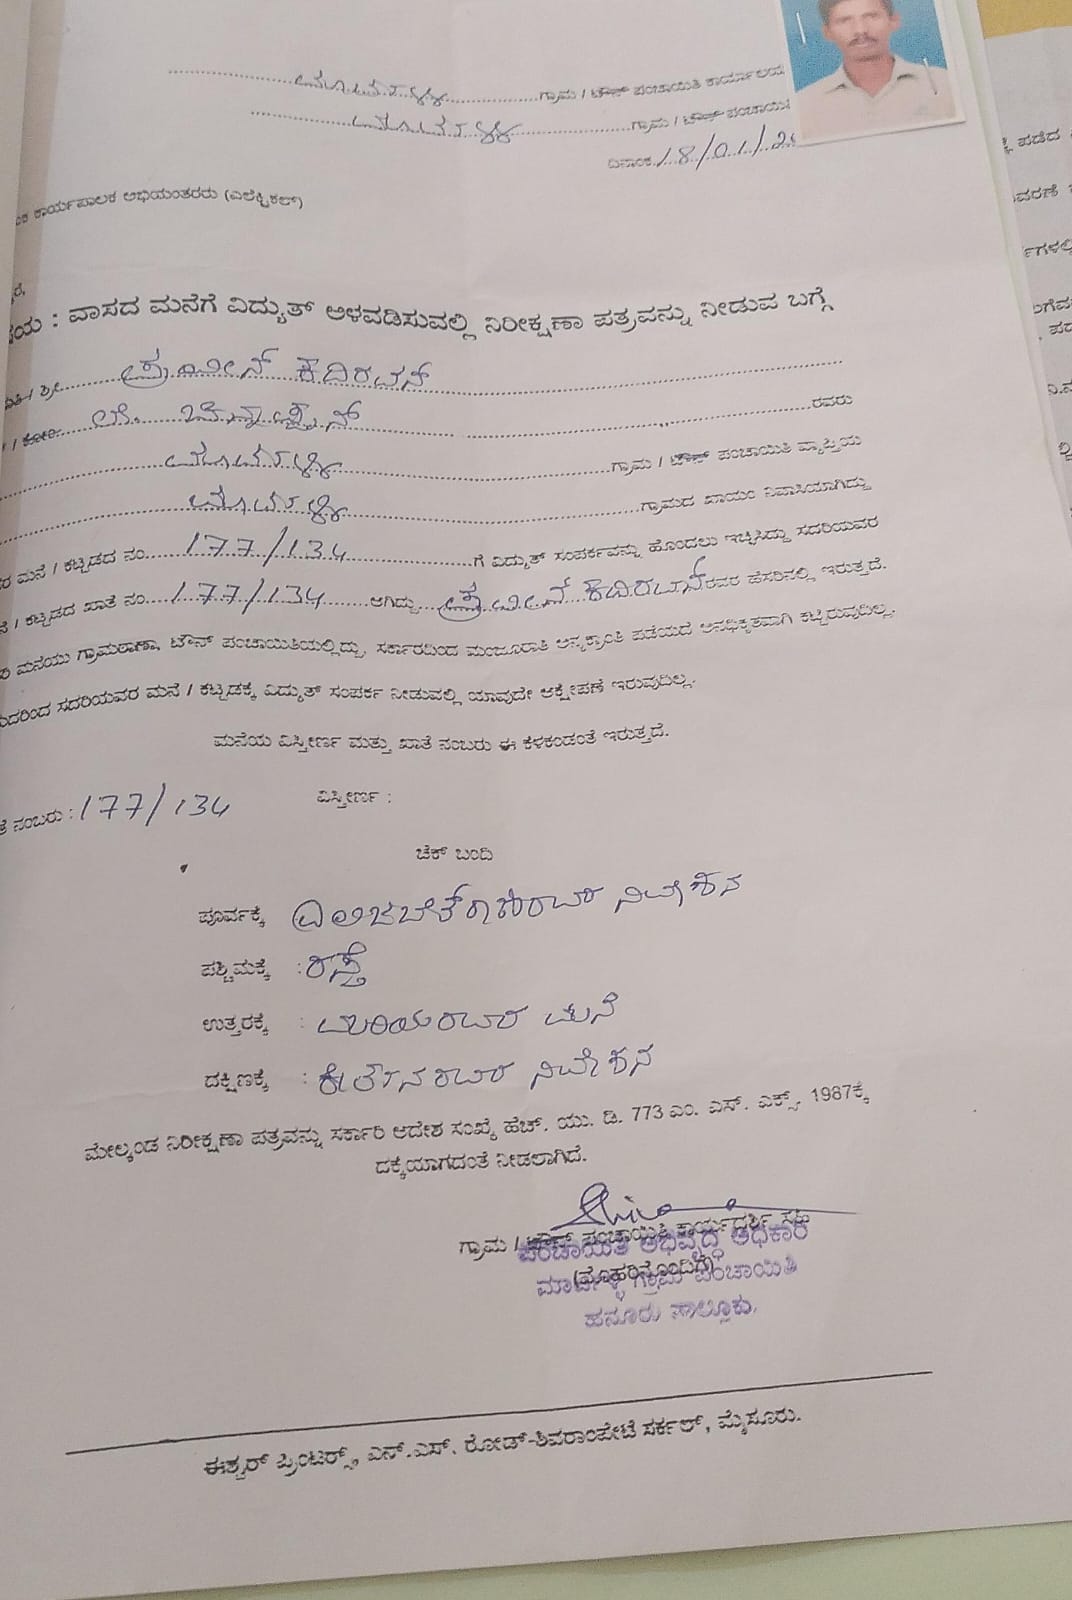 ಮಾರ್ಟಳ್ಳಿ ಗ್ರಾಮ / ಟೌನ್ ಪಂಚಾಯಿತಿ ಕಾರ್ಯಾಲಯ
ಮಾರ್ಟಳ್ಳಿ ಗ್ರಾಮ / ಟೌನ್ ಪಂಚಾಯಿ
ದಿನಾಂಕ 18/01/2
ಕಾರ್ಯಪಾಲಕ ಅಭಿಯಂತರರು (ಎಲೆಕ್ಟ್ರಿಕಲ್)
: ವಾಸದ ಮನೆಗೆ ವಿದ್ಯುತ್ ಅಳವಡಿಸುವಲ್ಲಿ ನಿರೀಕ್ಷಣಾ ಪತ್ರವನ್ನು ನೀಡುವ ಬಗ್ಗೆ
/ ಶ್ರೀ ಪ್ರವೀನ್ ಕದಿರವನ್
/ ಕೋರಿ ರವರು
ಮಾರ್ಟಳ್ಳಿ ಗ್ರಾಮ / ಟೌನ್ ಪಂಚಾಯಿತಿ ವ್ಯಾಪ್ತಿಯ
ಮಾರ್ಟಳ್ಳಿ ಗ್ರಾಮದ ಖಾಯಂ ನಿವಾಸಿಯಾಗಿದ್ದು
ಮನೆ / ಕಟ್ಟಡದ ನಂ. 177/134 ಗೆ ವಿದ್ಯುತ್ ಸಂಪರ್ಕವನ್ನು ಹೊಂದಲು ಇಚ್ಛಿಸಿದ್ದು ಸದರಿಯವರ
/ ಕಟ್ಟಡದ ಖಾತೆ ನಂ. 177/134 ಆಗಿದ್ದು ಪ್ರವೀನ್ ಕದಿರವನ್ ರವರ ಹೆಸರಿನಲ್ಲಿ ಇರುತ್ತದೆ.
ಮನೆಯು ಗ್ರಾಮಠಾಣಾ, ಟೌನ್ ಪಂಚಾಯಿತಿಯಲ್ಲಿದ್ದು, ಸರ್ಕಾರದಿಂದ ಮಂಜೂರಾತಿ ಅನ್ಯಕ್ರಾಂತಿ ಪಡೆಯದೆ ಅನಧಿಕೃತವಾಗಿ ಕಟ್ಟಿರುವುದಿಲ್ಲ.
ಸದರಿಯವರ ಮನೆ / ಕಟ್ಟಡಕ್ಕೆ ವಿದ್ಯುತ್ ಸಂಪರ್ಕ ನೀಡುವಲ್ಲಿ ಯಾವುದೇ ಆಕ್ಷೇಪಣೆ ಇರುವುದಿಲ್ಲ.
ಮನೆಯ ವಿಸ್ತೀರ್ಣ ಮತ್ತು ಖಾತೆ ನಂಬರು ಈ ಕೆಳಕಂಡಂತೆ ಇರುತ್ತದೆ.
ನಂಬರು : 177/134 ವಿಸ್ತೀರ್ಣ :
ಚೆಕ್ ಬಂದಿ
ಪೂರ್ವಕ್ಕೆ ನಿವೇಶನ
ಪಶ್ಚಿಮಕ್ಕೆ : ರಸ್ತೆ
ಉತ್ತರಕ್ಕೆ : ಮರಿಯರವರ ಮನೆ
ದಕ್ಷಿಣಕ್ಕೆ : ನಿವೇಶನ
ಮೇಲ್ಕಂಡ ನಿರೀಕ್ಷಣಾ ಪತ್ರವನ್ನು ಸರ್ಕಾರಿ ಆದೇಶ ಸಂಖ್ಯೆ ಹೆಚ್. ಯು. ಡಿ. 773 ಎಂ. ಎಸ್. ಎಕ್ಸ್. 1987ಕ್ಕೆ
ದಕ್ಕೆಯಾಗದಂತೆ ನೀಡಲಾಗಿದೆ.
ಗ್ರಾಮ / ಟೌನ್ ಪಂಚಾಯಿತಿ ಕಾರ್ಯದರ್ಶಿ ಸಹಿ
(ಮೊಹರಿನೊಂದಿಗೆ)
ಪಂಚಾಯಿತಿ ಅಭಿವೃದ್ಧಿ ಅಧಿಕಾರಿ
ಮಾರ್ಟಳ್ಳಿ ಗ್ರಾಮ ಪಂಚಾಯಿತಿ
ಹನೂರು ತಾಲ್ಲೂಕು.
ಈಶ್ವರ್ ಪ್ರಿಂಟರ್ಸ್, ಎನ್.ಎಸ್. ರೋಡ್-ಶಿವರಾಂಪೇಟೆ ಸರ್ಕಲ್, ಮೈಸೂರು.